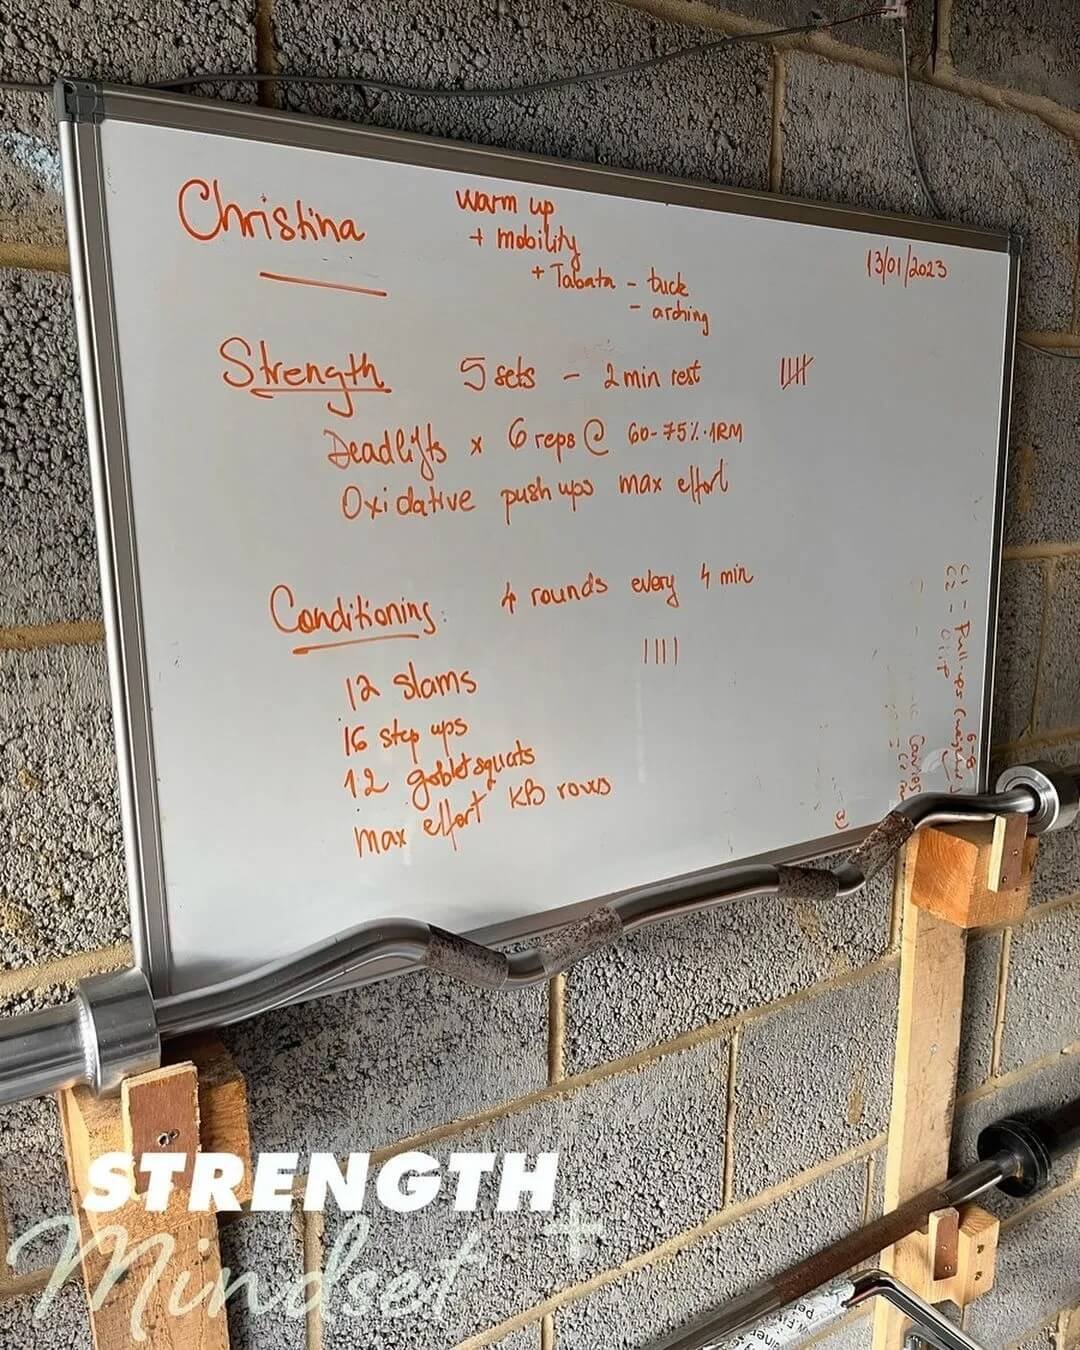 Christina
warm up
+ mobility
+ Tabata - tuck
- arching
13/01/2023
Strength 5 sets - 2 min rest
Deadlifts x 6 reps @ 60-75%·1RM
Oxidative push ups max effort
Conditioning: 4 rounds every 4 min
12 slams
16 step ups
12 goblet squats
max effort KB rows
C1 - Pull-ups
C2 -
6-8
Carries
3)
STRENGTH
Mindset +